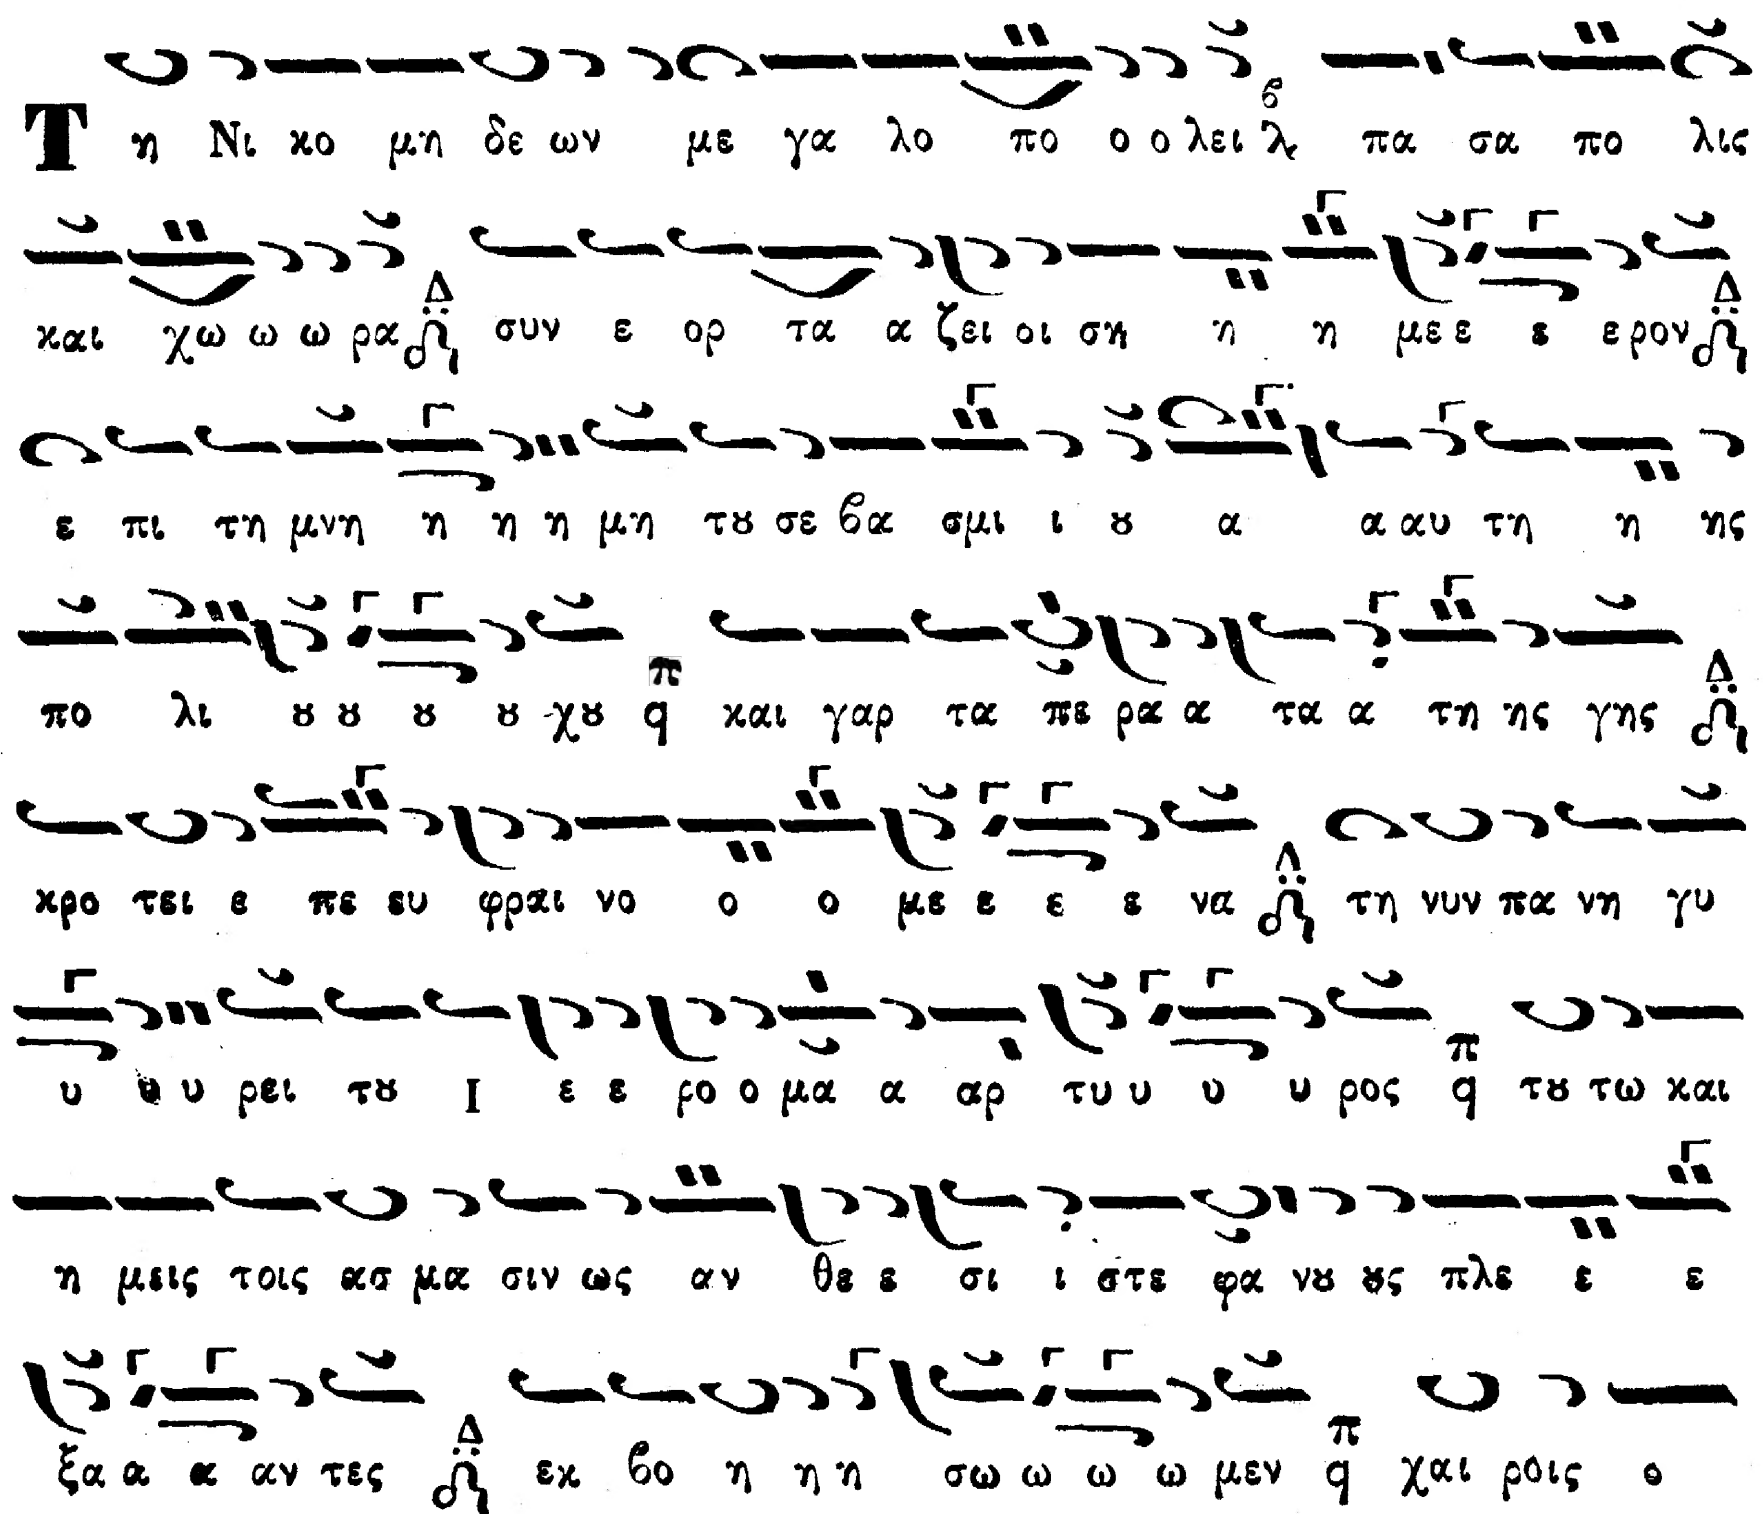 Τ η Νι κο μη δε ων με γα λο πο ο ο λει λ̓ πα σα πο λις
και χω ω ω ρα Δ συν ε ορ τα α ζει οι ση η η με ε ε ε ρον Δ
ε πι τη μνη η η η μη τȣ σε ϐα σμι ι ȣ α α αυ τη η ης
πο λι ȣ ȣ ȣ ȣ χȣ π q και γαρ τα πε ρα α τα α τη ης γης Δ
κρο τει ε πε ευ φραι νο ο ο με ε ε ε να Δ τη νυν πα νη γυ
υ υ υ ρει τȣ Ι ε ε ρο ο μα α αρ τυ υ υ υ ρος π q τȣ τω και
η μεις τοις ασ μα σιν ως αν θε ε σι ι στε φα νȣ ȣς πλε ε ε
ξα α α αν τες Δ εκ ϐο η η η σω ω ω ω μεν π q χαι ροις ο